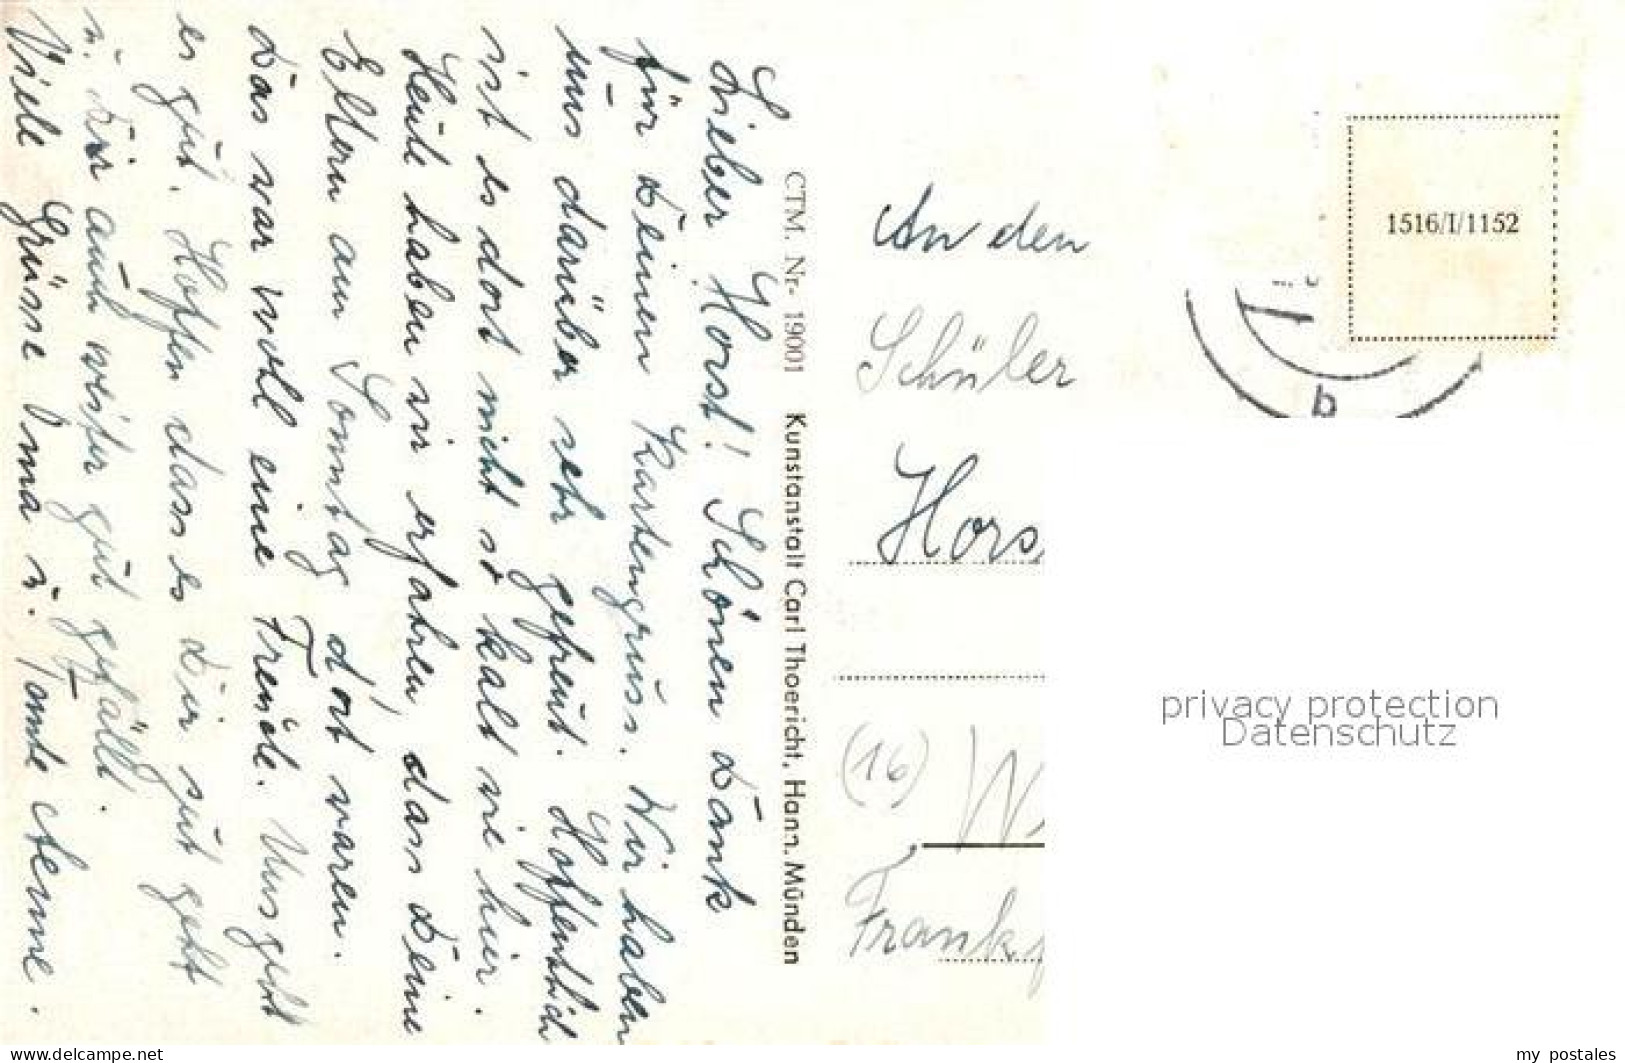 Lieber Horst! Schönen Dank
für Deinen Kartengruss. Wir haben
uns darüber sehr gefreut. Hoffentlich
ist es dort nicht so kalt wie hier.
Heute haben wir erfahren, dass Deine
Eltern am Sonntag dort waren.
Das war wohl eine Freude. Uns geht
es gut. Hoffen dass es Dir gut geht
u. Dir auch weiter gut gefällt.
Viele Grüsse Oma u. Tante Aenne.
CTM. Nr. 19001 Kunstanstalt Carl Thoericht, Hann. Münden
An den
Schüler
Hors
(16) W
Frankf
1516/I/1152
b
privacy protection
Datenschutz
www.delcampe.net
my_postales